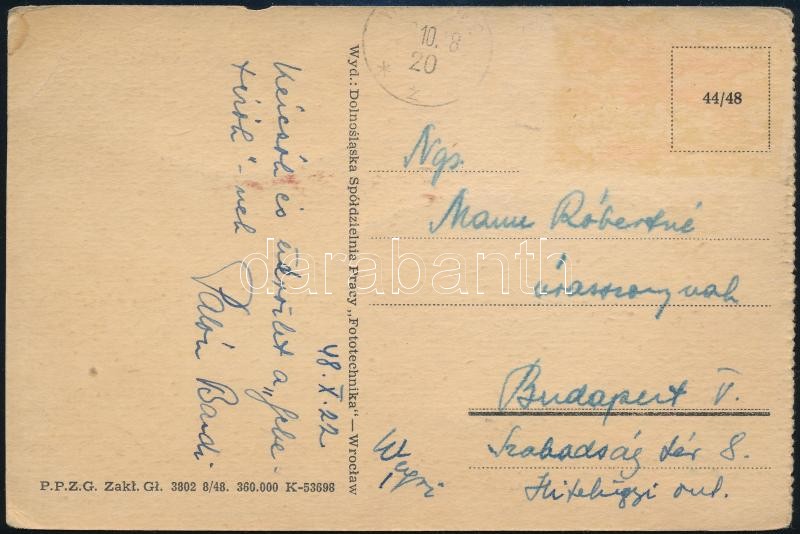 48. X. 22
és
a „Gebe-
" - nek
Bandi
Wyd.: Dolnośląska Spółdzielnia Pracy „Fototechnika" — Wrocław
10. 8
20
44/48
Ngs.
Róbertné
úrasszonynak
Budapest V.
Szabadság tér 8.
Hitelügyi oszt.
Węgry
P.P.Z.G. Zakł. Gł. 3802 8/48. 360.000 K-53698
darabanth